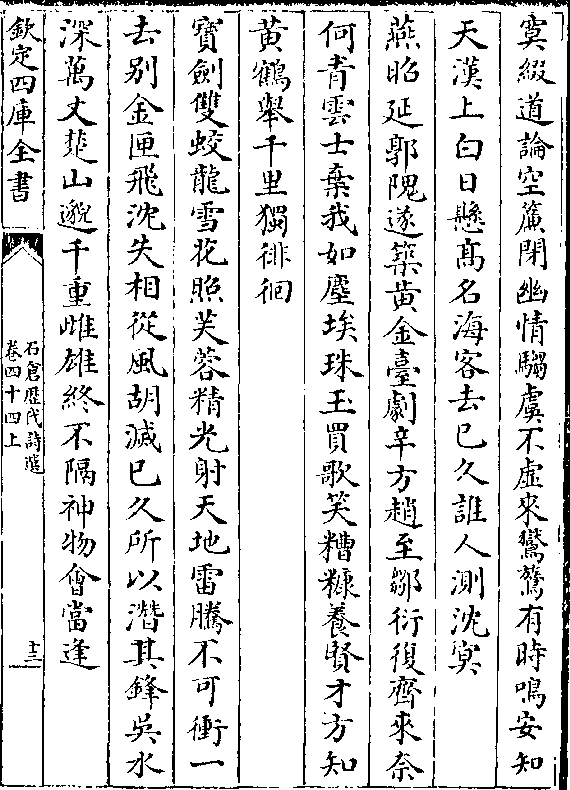 冥綴道論空簾閉幽情騶虞不虛來鸑鷟有時鳴安知
天漢上白日懸髙名海客去已久誰人測沈㝠
燕昭延郭隗遂築黄金臺劇辛方趙至鄒衍復齊來奈
何青雲士棄我如塵埃珠玉買歌笑糟糠養賢才方知
黄鶴舉千里獨徘徊
寳劍雙蛟龍雪花照芙蓉精光射天地雷騰不可衝一
去别金匣飛沈失相從風胡滅已久所以潛其鋒吳水
深萬丈楚山邈千重雌雄終不隔神物會當逢
欽定四庫全書
石倉歴代詩選
卷四十四上
十三